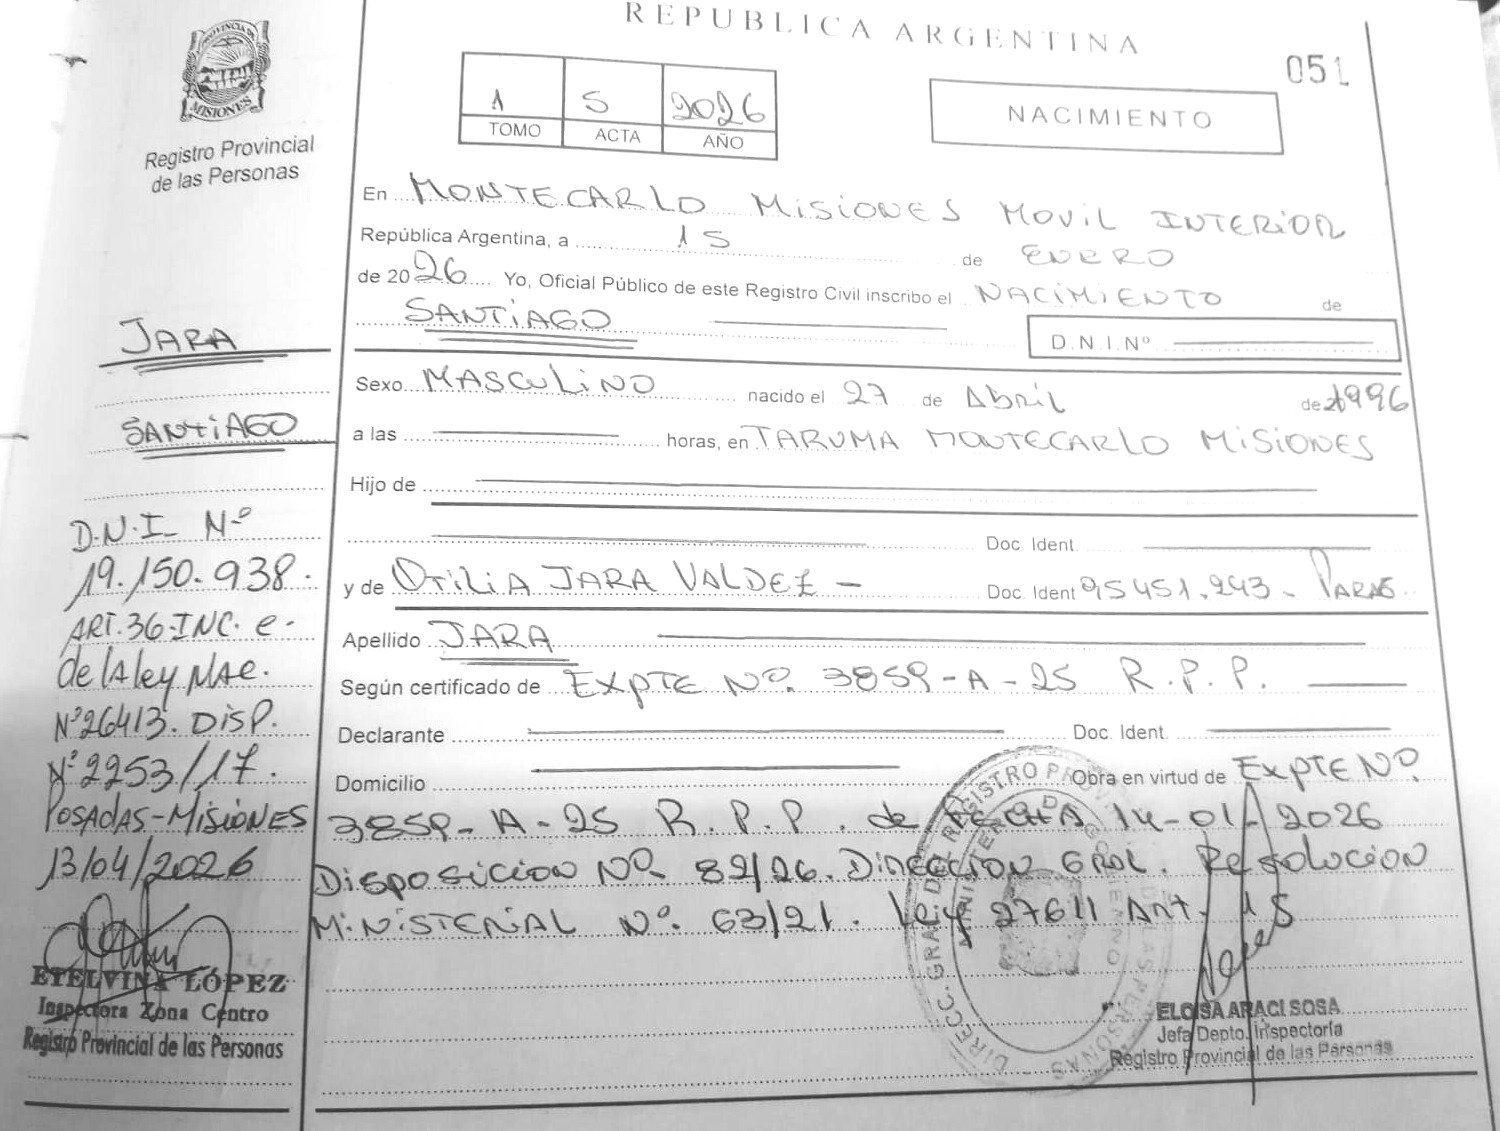 REPUBLICA ARGENTINA
051
PROVINCIA DE
MISIONES
Registro Provincial
de las Personas
1 5 2026
TOMO ACTA AÑO
NACIMIENTO
En MONTECARLO MISIONES MOVIL INTERIOR
República Argentina, a 15 de ENERO
de 2026 Yo, Oficial Público de este Registro Civil inscribo el NACIMIENTO de
SANTIAGO D.N.I.Nº
Sexo MASCULINO nacido el 27 de Abril de 1996
a las horas, en TARUMA MONTECARLO MISIONES
Hijo de
Doc. Ident.
y de OTILIA JARA VALDEZ - Doc. Ident 95451.243 - PARAG
Apellido JARA
Según certificado de EXPTE Nº. 3859-A-25 R.P.P.
Declarante Doc. Ident.
Domicilio Obra en virtud de EXPTE Nº.
3859-A-25 R.P.P. de FECHA 14-01-2026
DISPOSICION Nº 82/26. DIRECCION GRAL. RESOLUCION
MINISTERIAL Nº. 63/21. Ley 27611 Art. 15
JARA
SANTIAGO
D.N.I. Nº
19.150.938.
ART.36-INC. e-
de lA ley NAC.
Nº26413. DISP.
Nº2253/17.
POSADAS-MISIONES
13/04/2026
ETELVINA LÓPEZ
Inspectora Zona Centro
Registro Provincial de las Personas
ELOISA ARACI SOSA
Jefa Depto. Inspectoría
Registro Provincial de las Personas